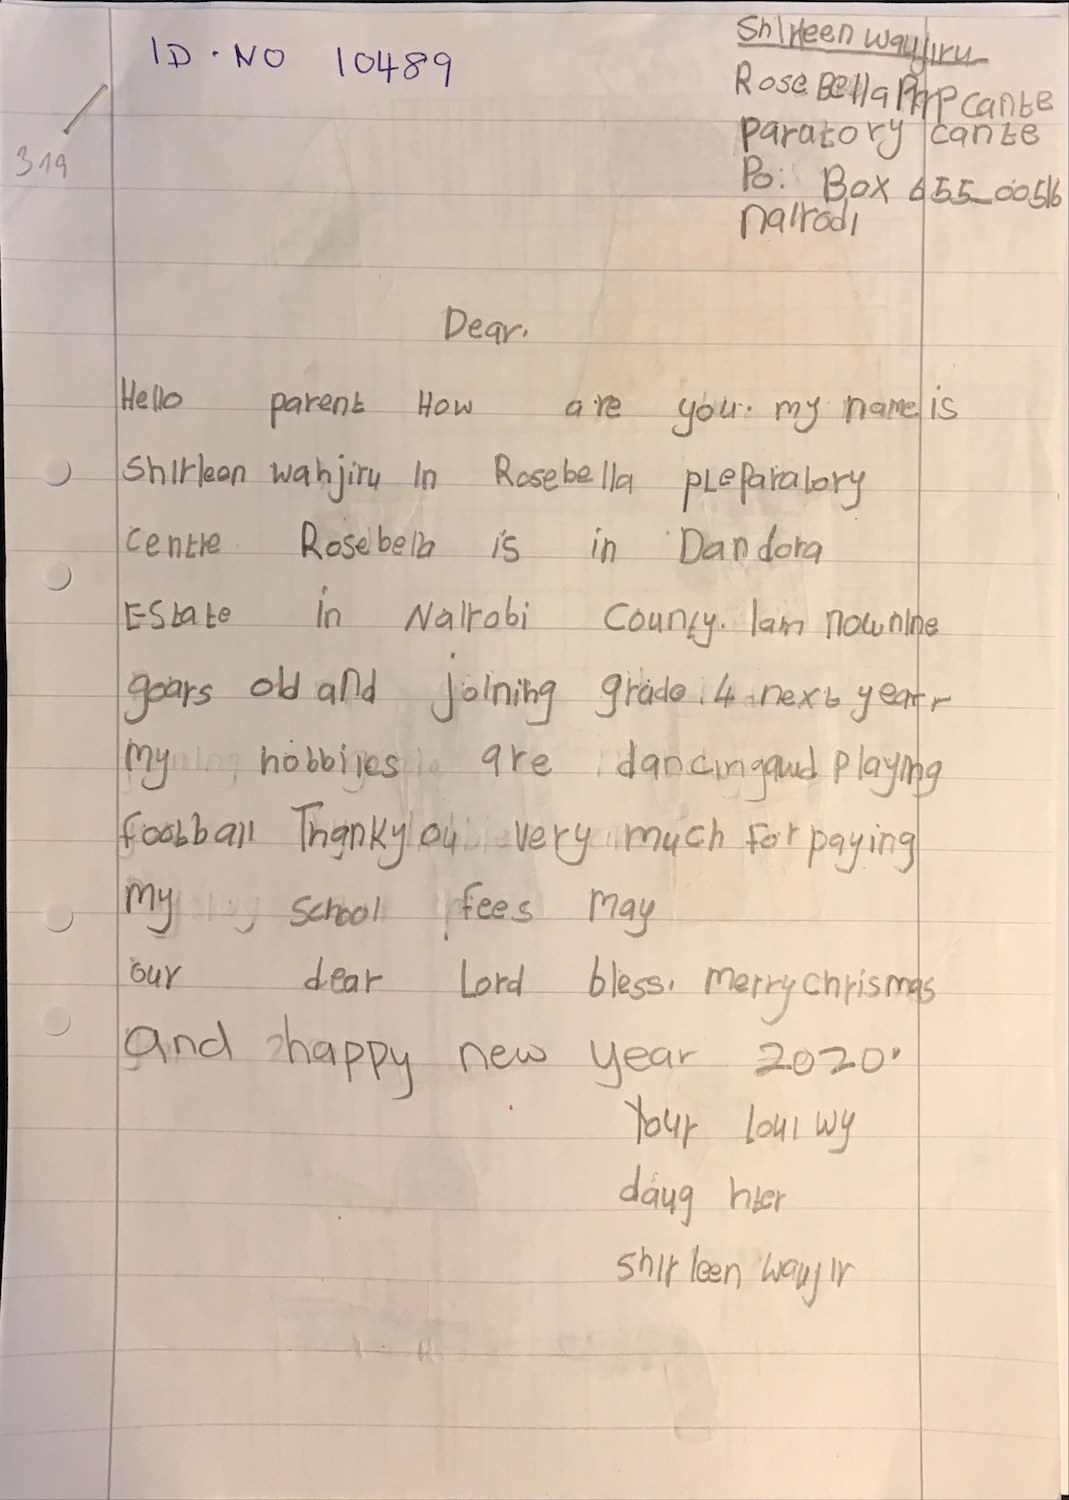 ID. NO 10489
319
Shirleen waujiru
Rose Bella Prp cante
paratory cante
Po: Box 655_00516
nairodi
Dear.
Hello parent How are you. my name is
Shirleen wahjiru in Rosebella preparatory
centre Rosebella is in Dandora
Estate in Nairobi County. Iam now nine
gears old and joining grade 4 next year
my hobbijes are dancing aud playing
football Thankyou very much for paying
my school fees may
our dear Lord bless. merry chrismas
and happy new year 2020.
Your loui wy
daug hter
shirleen waujir